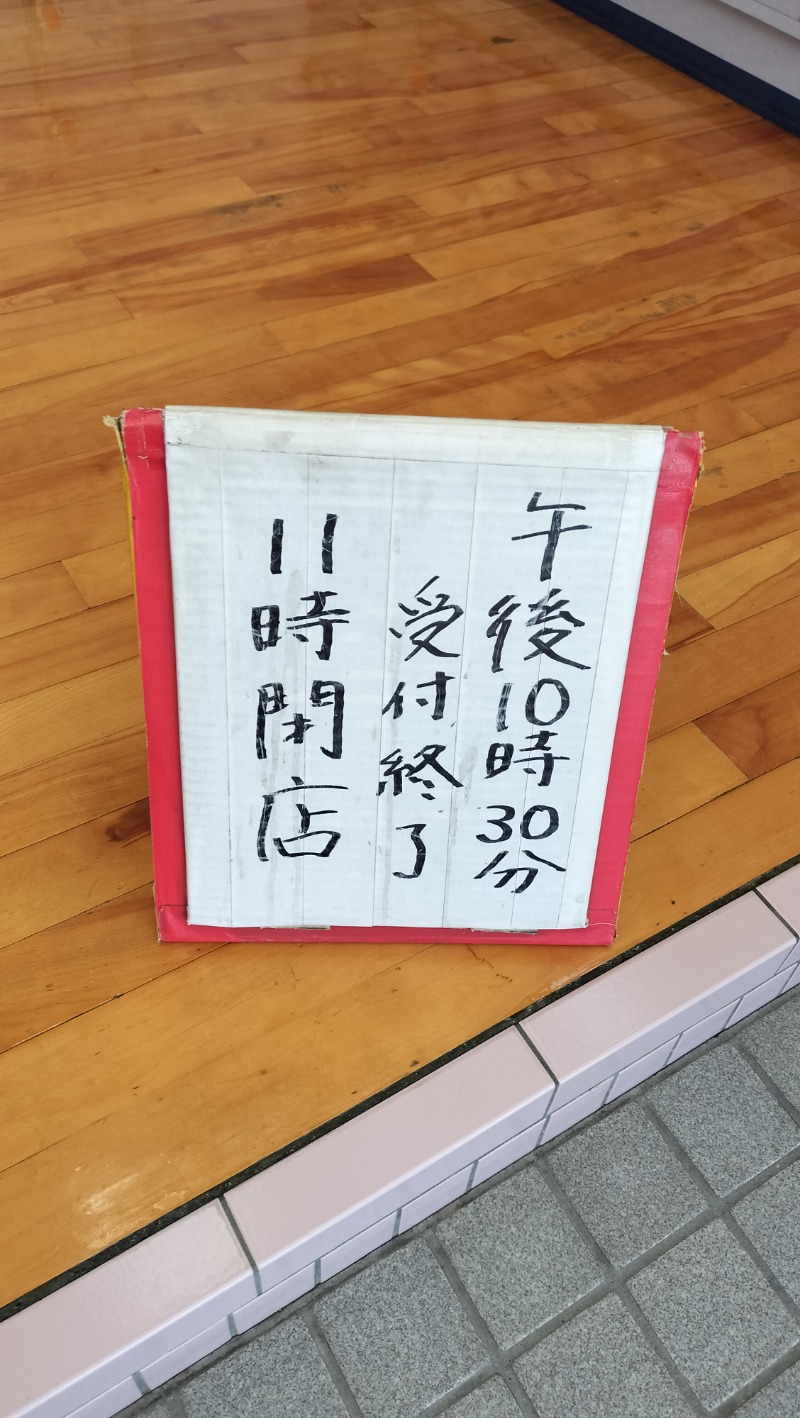 午後10時30分
受付終了
11時閉店